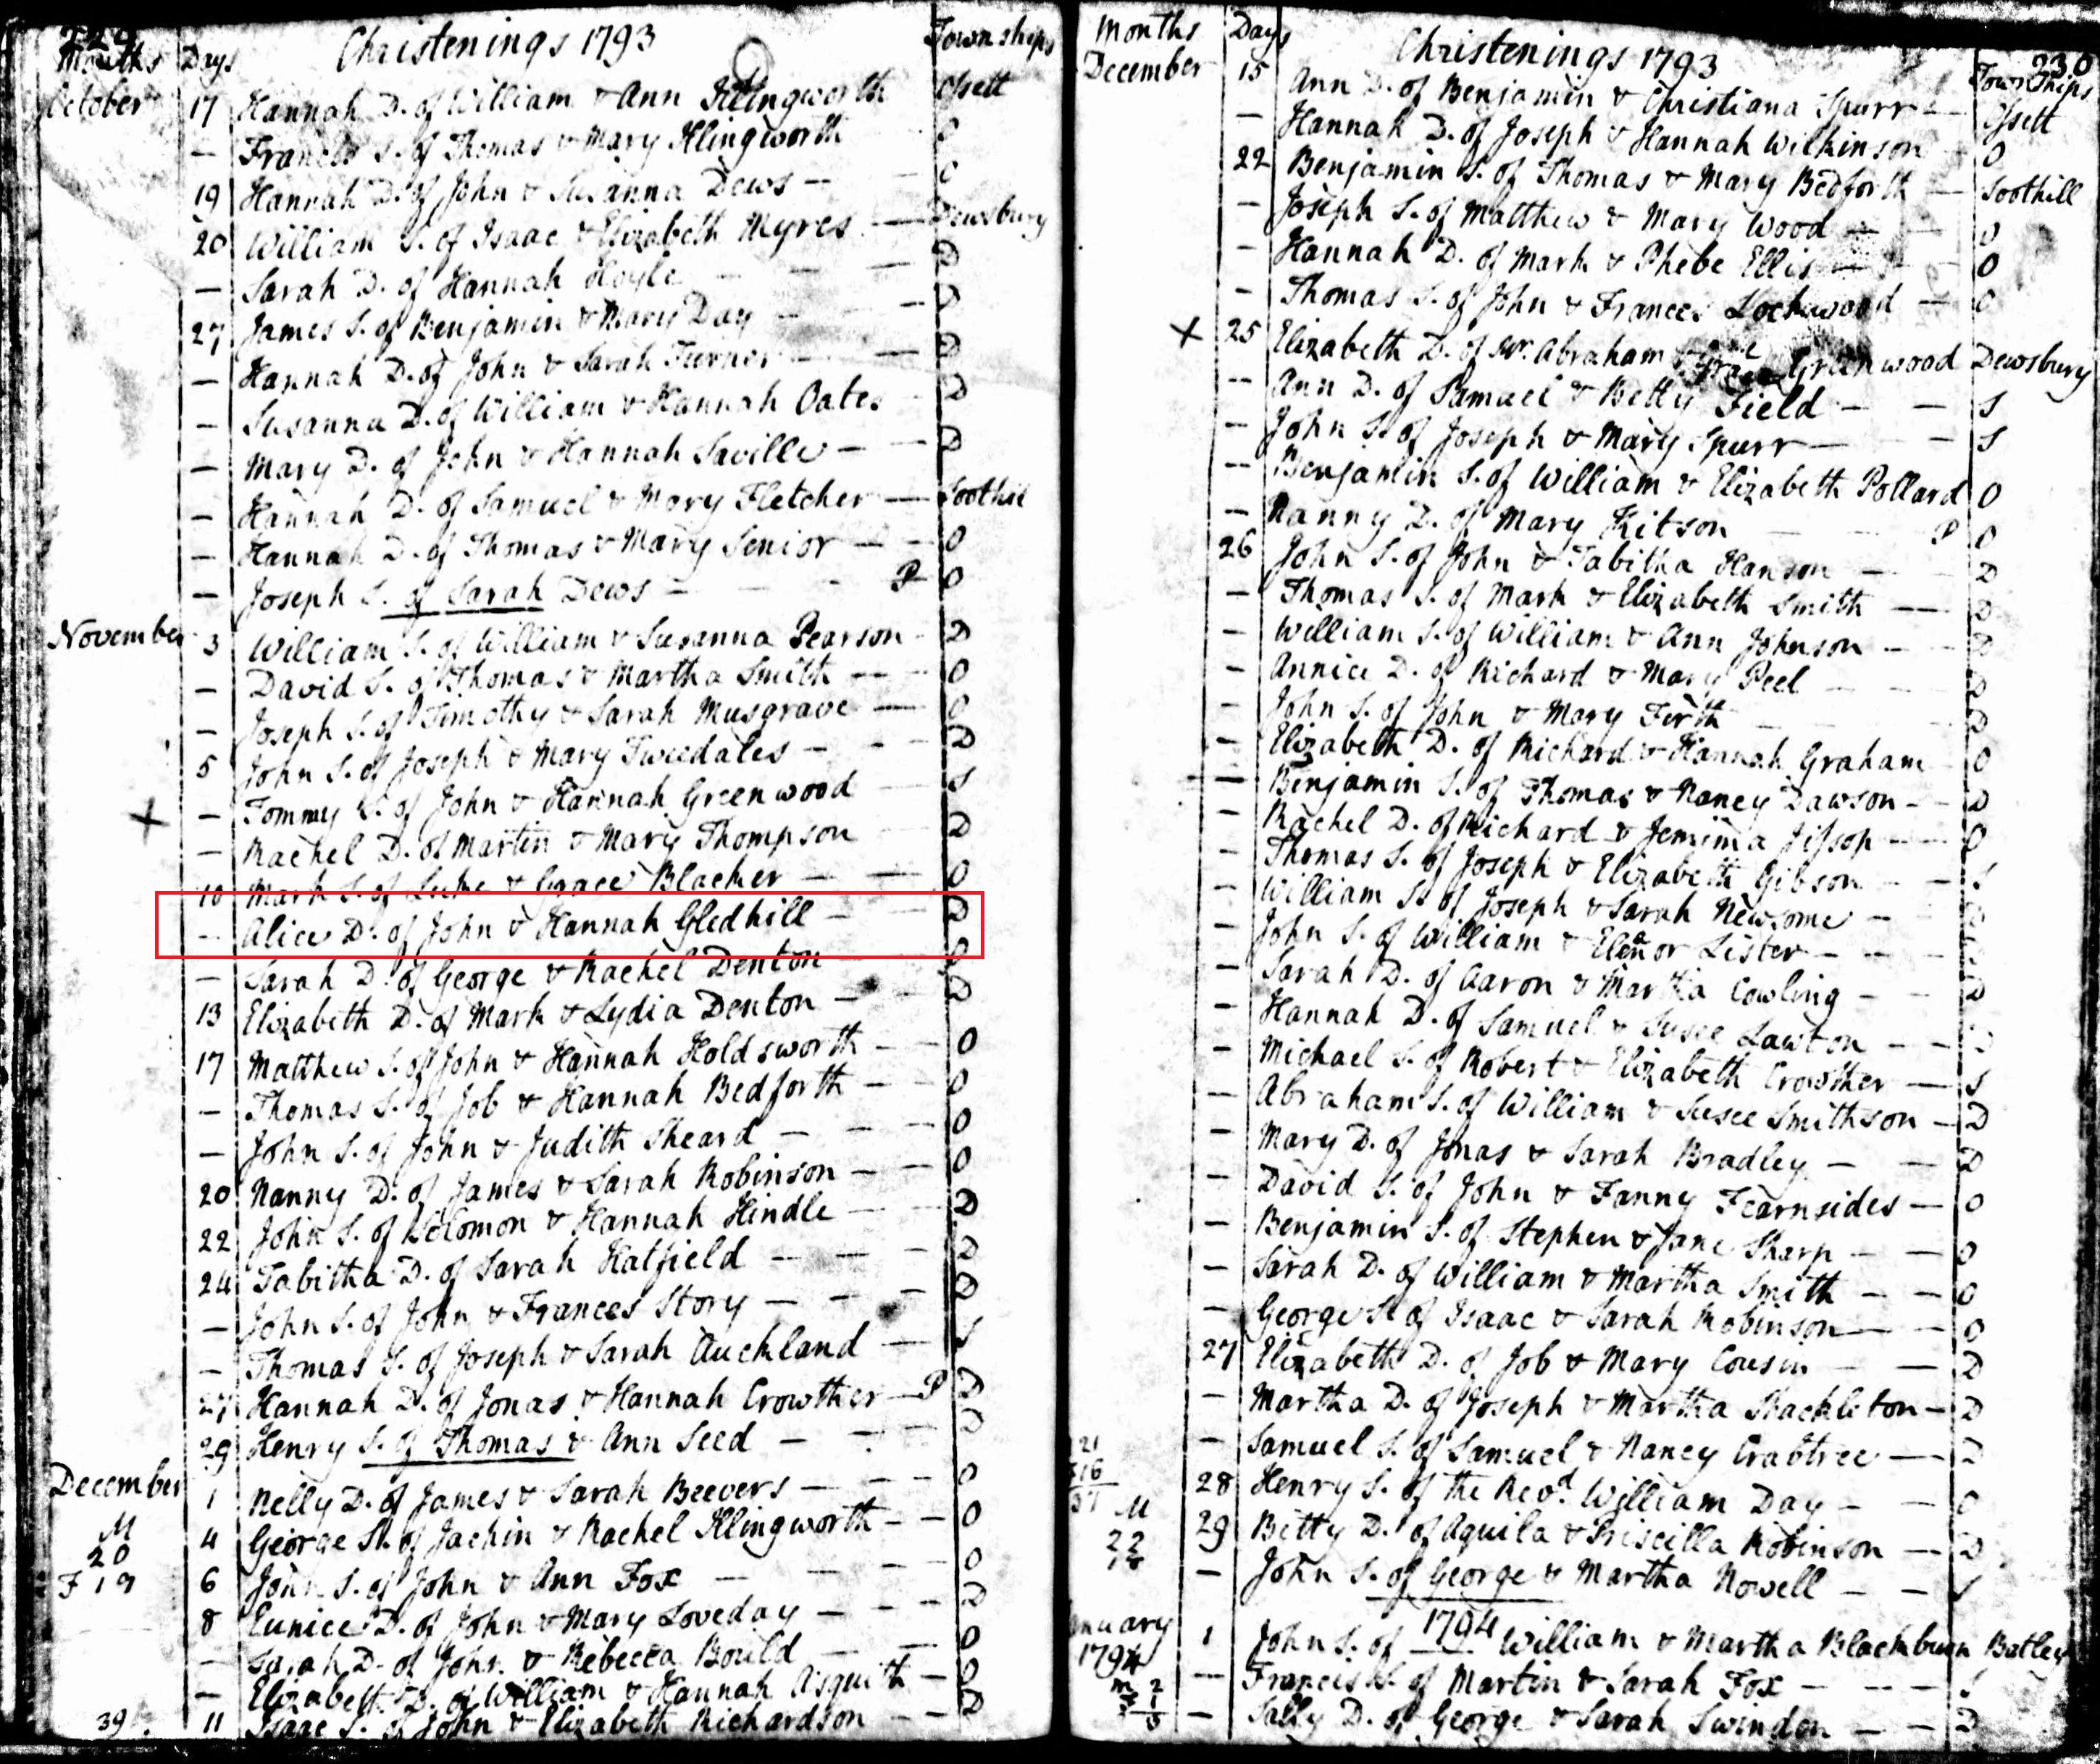 229
Months Days Christenings 1793 Townships
October 17 Hannah D. of William & Ann Illingworth Ossett
— Francis S. of Thomas & Mary Illingworth O
19 Hannah D. of John & Susanna Dews — O
20 William S. of Isaac & Elizabeth Myres — Dewsbury
— Sarah D. of Hannah Hoyle — — — D
27 James S. of Benjamin & Mary Day — — D
— Hannah D. of John & Sarah Turner — — D
— Susanna D. of William & Hannah Oates — D
— Mary D. of John & Hannah Saville — — D
— Hannah D. of Samuel & Mary Fletcher — Soothil
— Hannah D. of Thomas & Mary Senior — — O
— Joseph S. of Sarah Dews — — — P O
November 3 William S. of William & Susanna Pearson — D
— David S. of Thomas & Martha Smith — — O
— Joseph S. of Timothy & Sarah Musgrave — O
5 John S. of Joseph & Mary Tweedales — — D
+ — Tommy S. of John & Hannah Greenwood S
— Rachel D. of Martin & Mary Thompson D
10 Mark S. of Luke & Grace Blacker — — O
— Alice D. of John & Hannah Gledhill — — D
— Sarah D. of George & Rachel Denton
13 Elizabeth D. of Mark & Lydia Denton — — D
17 Matthew S. of John & Hannah Holdsworth — — O
— Thomas S. of Job & Hannah Bedforth — — O
— John S. of John & Judith Sheard — — — O
20 Nanny D. of James & Sarah Robinson — — O
22 John S. of Solomon & Hannah Hindle — — D
24 Tabitha D. of Sarah Hatfield — — — D
— John S. of John & Frances Story — — — D
— Thomas S. of Joseph & Sarah Auckland — S
27 Hannah D. of Jonas & Hannah Crowther — P D
29 Henry S. of Thomas & Ann Seed — — D
December 1 Nelly D. of James & Sarah Beevers — — — O
M 4 George S. of Jachin & Rachel Illingworth — — O
20
F 19 6 John S. of John & Ann Fox — — — O
8 Eunice D. of John & Mary Loveday — — — D
— Sarah D. of John & Rebecca Bould — — O
— Elizabeth D. of William & Hannah Asquith — O
39 11 Isaac S. of John & Elizabeth Richardson — — D
230
Months Days Christenings 1793 Townships
December 15 Ann D. of Benjamin & Christiana Spurr — Ossett
— Hannah D. of Joseph & Hannah Wilkinson O
22 Benjamin S. of Thomas & Mary Bedforth — Soothill
— Joseph S. of Matthew & Mary Wood — — O
— Hannah D. of Mark & Phebe Ellis — — O
— Thomas S. of John & Frances Lockwood — O
+ 25 Elizabeth D. of Mr. Abraham & Greenwood Dewsbury
— Ann D. of Samuel & Betty Field — — S
— John S. of Joseph & Mary Spurr — — S
— Benjamin S. of William & Elizabeth Pollard O
— Nanny D. of Mary Kitson — — P O
26 John S. of John & Tabitha Hanson — — D
— Thomas S. of Mark & Elizabeth Smith — D
— William S. of William & Ann Johnson — — D
— Annice D. of Richard & Mary Peel — — D
— John S. of John & Mary Firth — — D
— Elizabeth D. of Richard & Hannah Graham O
— Benjamin S. of Thomas & Nancy Dawson — D
— Rachel D. of Richard & Jemima Jissop — — O
— Thomas S. of Joseph & Elizabeth Gibson — — S
— William S. of Joseph & Sarah Newsome —
— John S. of William & Elenor Lister — —
— Sarah D. of Aaron & Martha Cowling — — D
— Hannah D. of Samuel & Susee Lawton — — D
— Michael S. of Robert & Elizabeth Crowther — S
— Abraham S. of William & Susee Smithson — D
— Mary D. of Jonas & Sarah Bradley — — D
— David S. of John & Fanny Fearnsides — O
— Benjamin S. of Stephen & Jane Sharp — — O
— Sarah D. of William & Martha Smith — — O
— George S. of Isaac & Sarah Robinson — — O
27 Elizabeth D. of Job & Mary Cousin — — D
— Martha D. of Joseph & Martha Shackleton — D
— Samuel S. of Samuel & Nancy Crabtree — D
28 Henry S. of the Revd. William Day — — O
M 29 Betty D. of Aquila & Priscilla Robinson — D
22
18 — John S. of George & Martha Nowell — — S
1794
January 1 John S. of William & Martha Blackburn Batley
1794 — Francis S. of Martin & Sarah Fox — — — S
— Sally D. of George & Sarah Swinden — — D